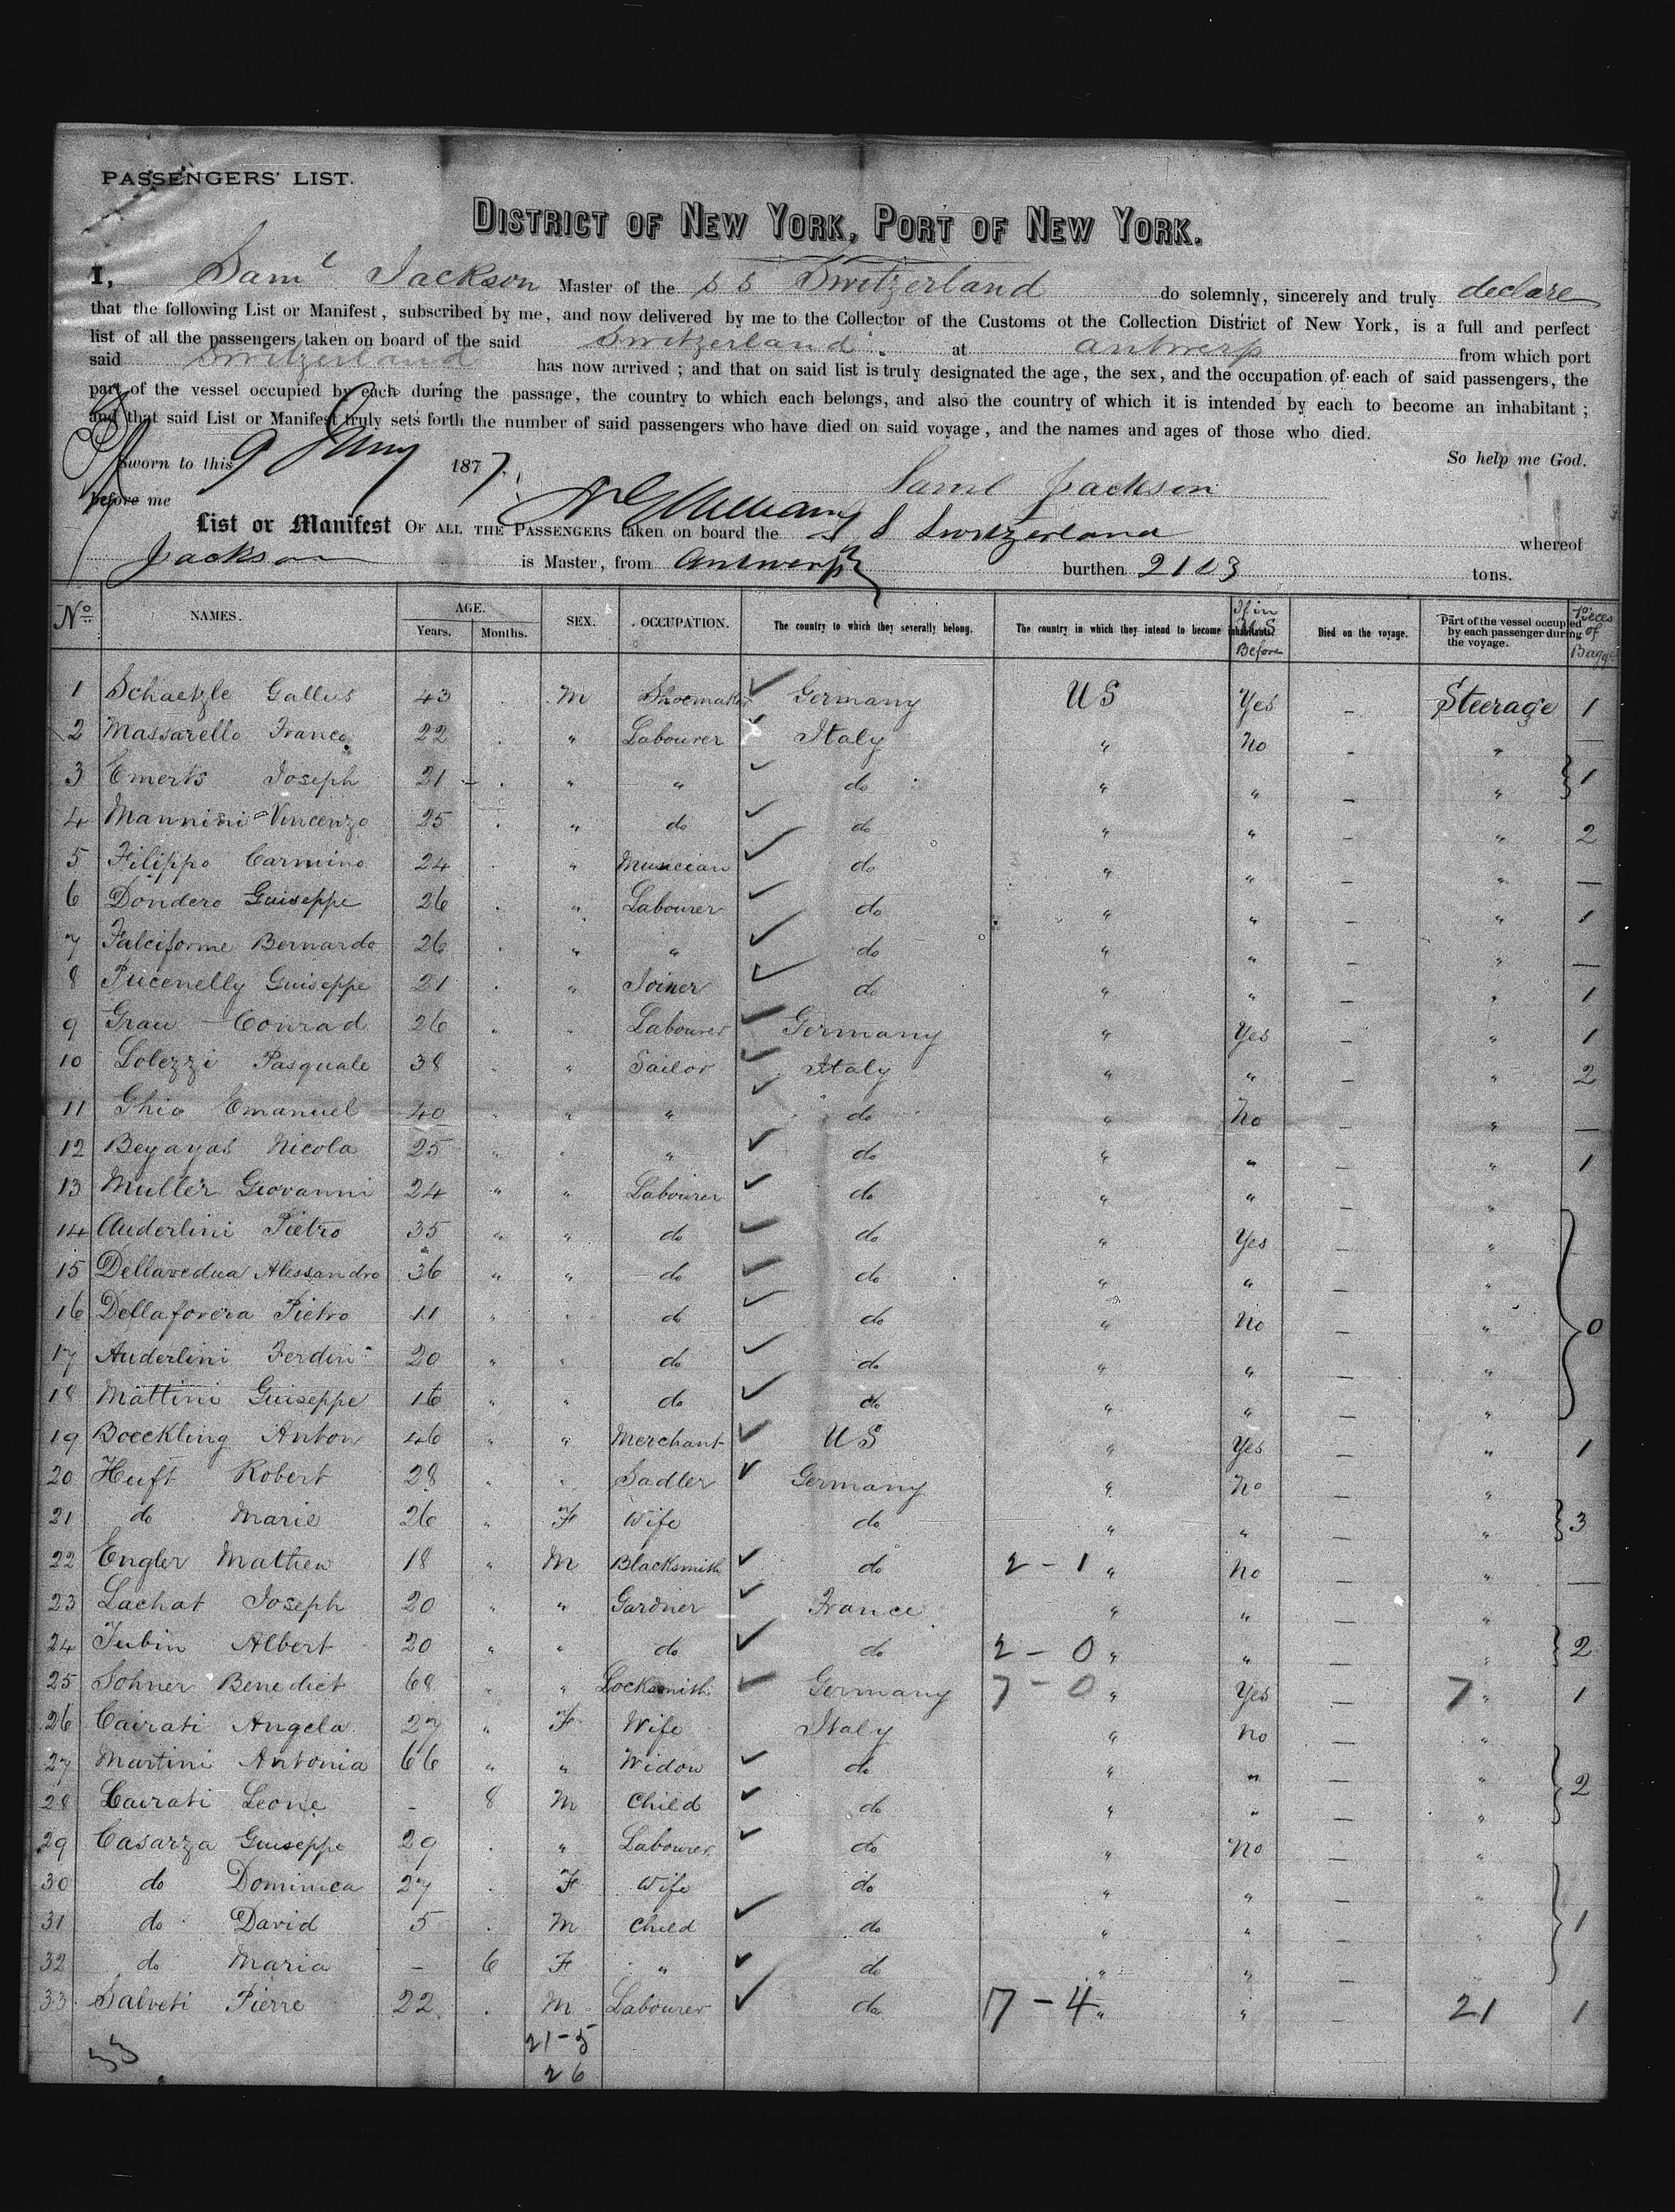 PASSENGERS' LIST.
DISTRICT OF NEW YORK, PORT OF NEW YORK.
I, Saml Jackson Master of the S S Switzerland do solemnly, sincerely and truly declare
that the following List or Manifest, subscribed by me, and now delivered by me to the Collector of the Customs ot the Collection District of New York, is a full and perfect
list of all the passengers taken on board of the said Switzerland at Antwerp from which port
said Switzerland has now arrived; and that on said list is truly designated the age, the sex, and the occupation of each of said passengers, the
part of the vessel occupied by each during the passage, the country to which each belongs, and also the country of which it is intended by each to become an inhabitant;
and that said List or Manifest truly sets forth the number of said passengers who have died on said voyage, and the names and ages of those who died.
Sworn to this 9 1877. So help me God.
before me Saml Jackson
List or Manifest OF ALL THE PASSENGERS taken on board the S S Switzerland whereof
Jackson is Master, from Antwerp burthen tons.
No. NAMES. AGE. Years. Months. SEX. OCCUPATION. The country to which they severally belong. The country in which they intend to become inhabitants. If in U.S. Before Died on the voyage. Part of the vessel occupied by each passenger during the voyage. Pieces of Bagge
1 Schaetzle Gallus 43 . M Shoemaker ✓ Germany US Yes – Steerage 1
2 Massarello Franco 22 . " Labourer Italy " No – " —
3 Emerts Joseph 21 – . " " ✓ do " " – " 1
4 Mannini Vincenzo 25 . " do ✓ do " " – " 2
5 Filippo Carmino 24 . " Musician ✓ do " " – " —
6 Dondero Guiseppe 26 . " Labourer ✓ do " " – " 1
7 Falciforme Bernardo 26 . " " ✓ do " " – " —
8 Pucenelly Guiseppe 21 . " Joiner ✓ do " " – " 1
9 Grau Conrad 26 " " Labourer ✓ Germany " Yes – " 1
10 Lolezzi Pasquale 38 " " Sailor ✓ Italy " " – " 2
11 Ghio Emanuel 40 " " " ✓ do " No – " —
12 Beyayas Nicola 25 " " " ✓ do " " – " 1
13 Muller Giovanni 24 " " Labourer ✓ do " " – "
14 Auderlini Pietro 35 " " do ✓ do " Yes – "
15 Dellavedua Alessandro 36 " " do ✓ do " " – "
16 Dellaforera Pietro 11 " " do ✓ do " No – " 0
17 Auderlini Ferdin 20 " " do ✓ do " " – "
18 Mattini Guiseppe 16 " " do ✓ do " " – "
19 Boeckling Anton 46 " " Merchant ✓ US " Yes – " 1
20 Huft Robert 28 " " Sadler ✓ Germany " No – "
21 do Marie 26 " F Wife do " " – " 3
22 Engler Mathew 18 " M Blacksmith ✓ do 2 - 1 " No – " —
23 Lachat Joseph 20 " " Gardner ✓ France " " – "
24 Jubin Albert 20 " " do ✓ do 2 - 0 " " – " 2
25 Sohner Benedict 68 " " Locksmith ✓ Germany 7 - 0 " Yes – 7 " 1
26 Cairati Angela 27 " F Wife Italy " No – "
27 Martini Antonia 66 " " Widow ✓ do " " – " 2
28 Cairati Leone - 8 M Child ✓ do " " – "
29 Casarza Guiseppe 29 . " Labourer ✓ do " No – "
30 do Dominica 27 . F Wife do " " – "
31 do David 5 . M Child ✓ do " " – " 1
32 do Maria – 6 F " ✓ do " " – "
33 Salveti Pierre 22 . M Labourer ✓ do 17 - 4 " " – 21 1
33 21-5
26